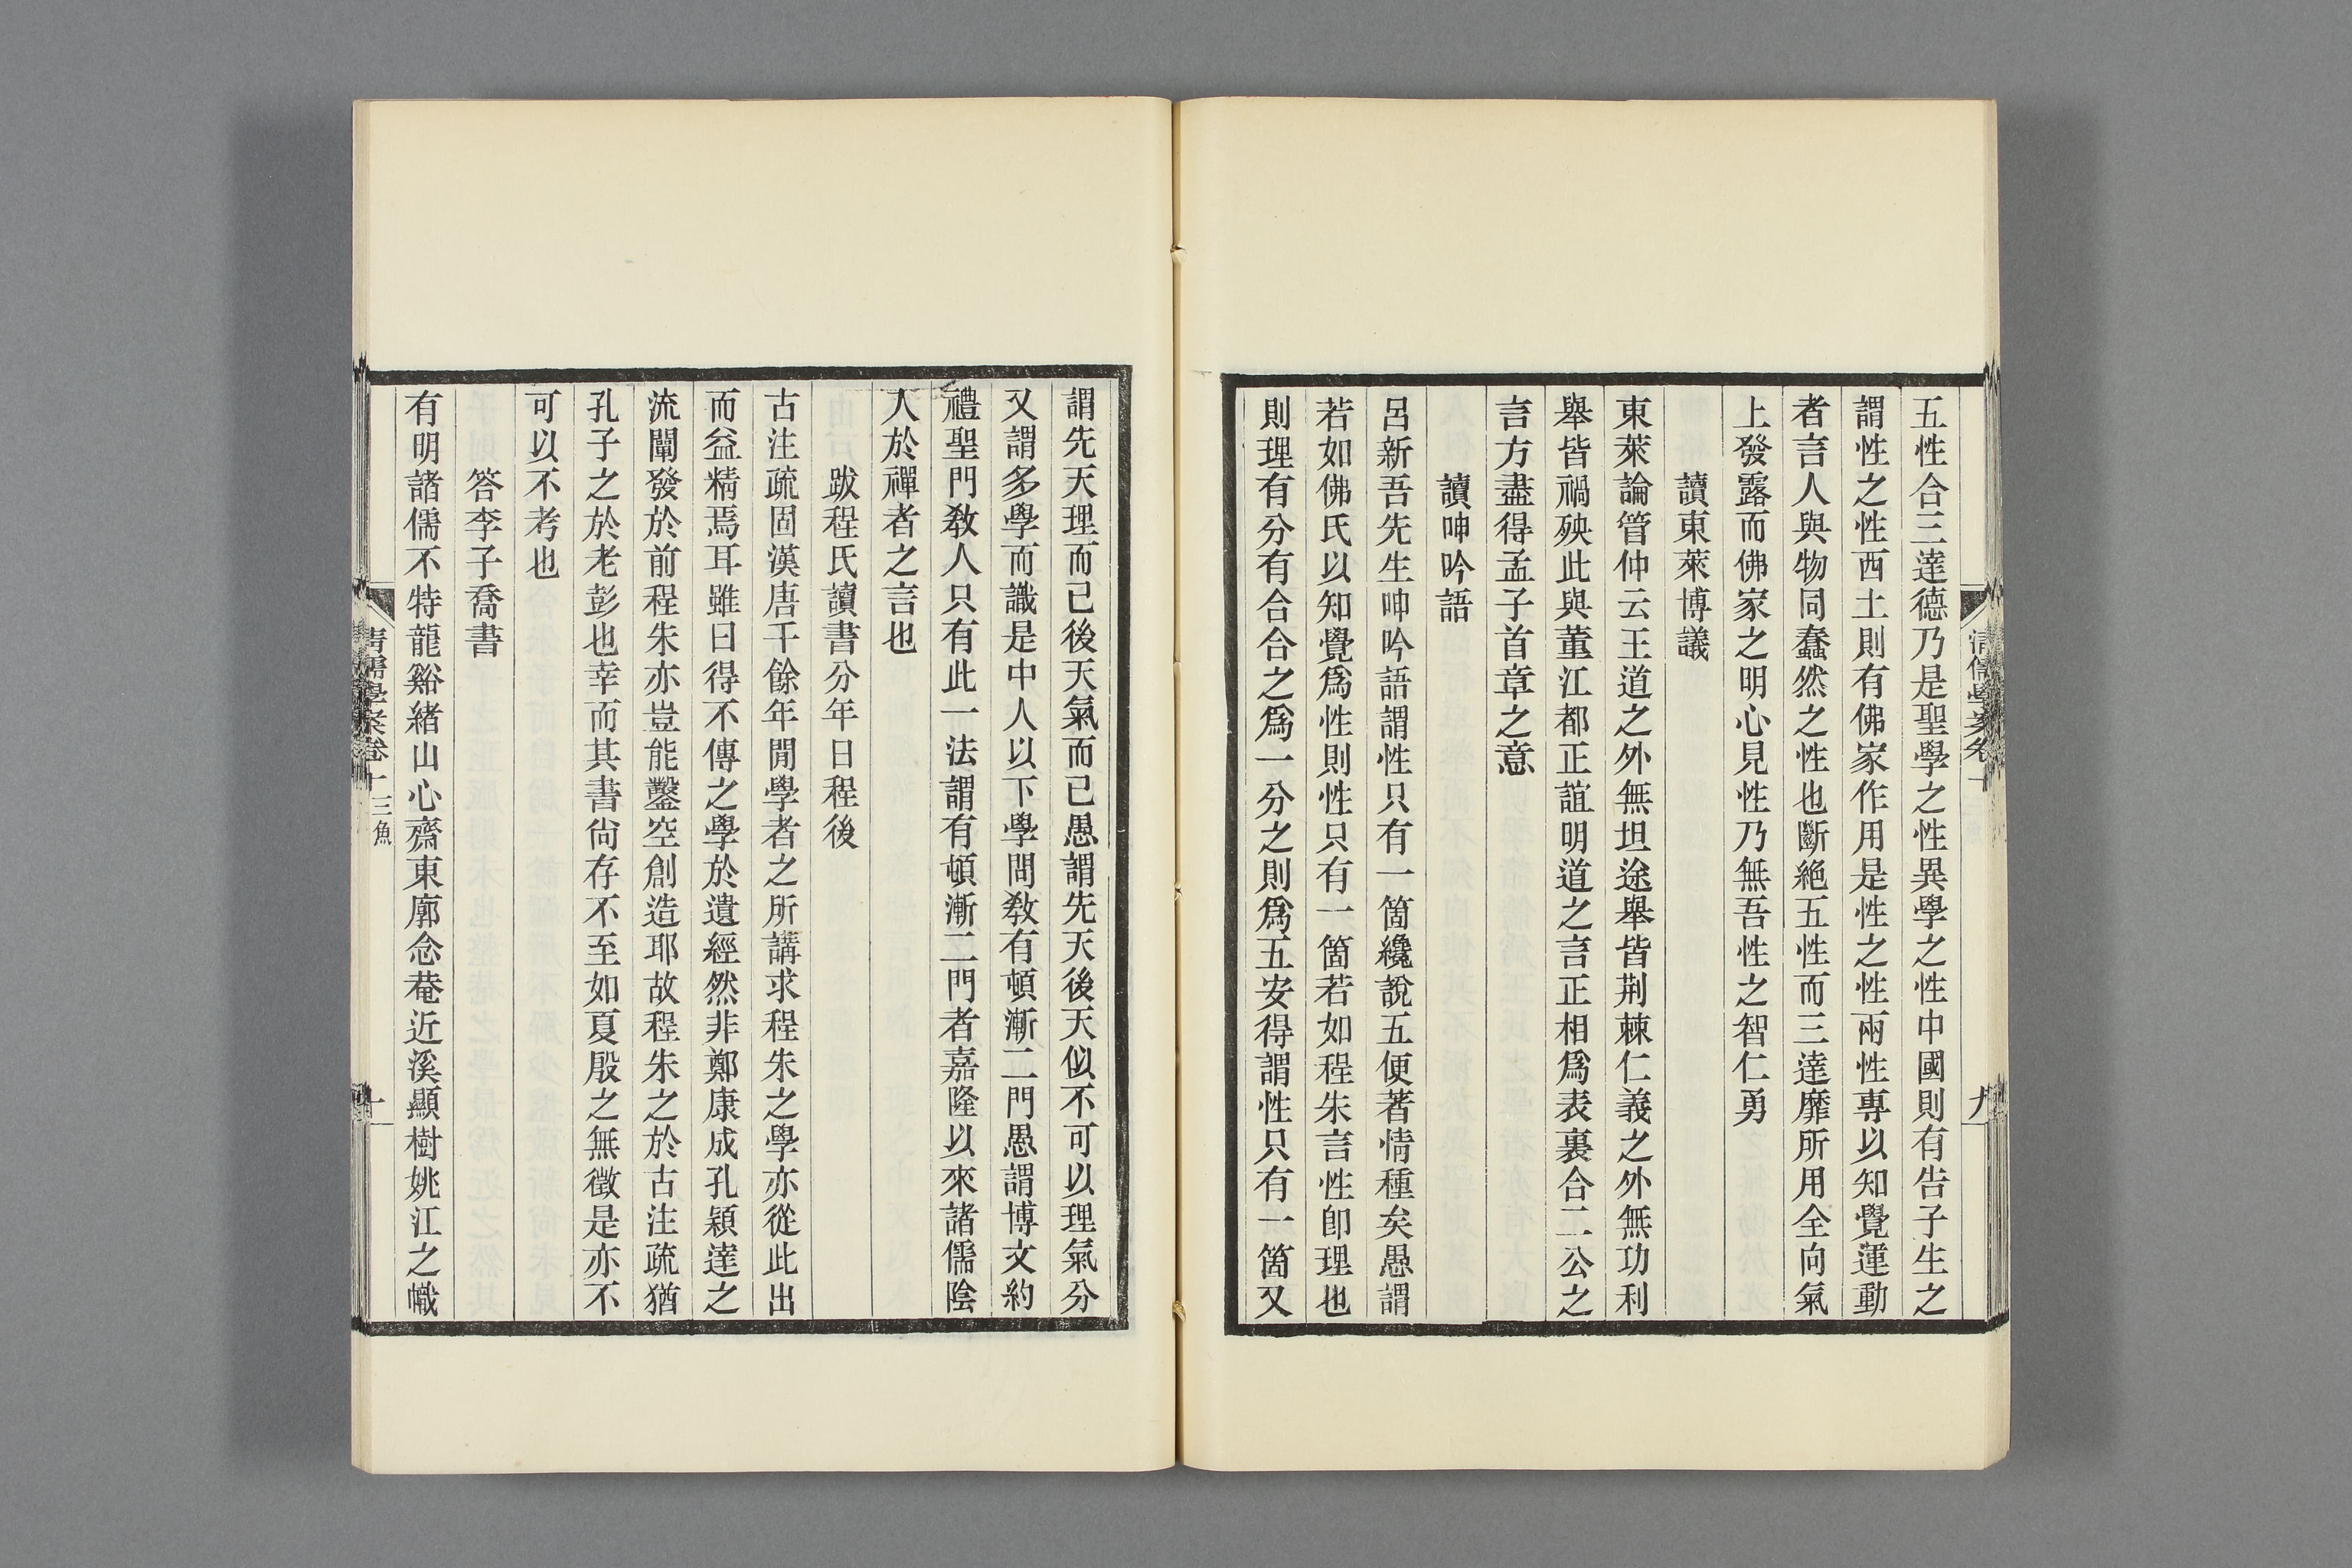 五性合三達德乃是聖學之性異學之性中國則有告子生之
謂性之性西土則有佛家作用是性之性兩性專以知覺運動
者言人與物同蠢然之性也斷絕五性而三達靡所用全向氣
上發露而佛家之明心見性乃無吾性之智仁勇
讀東萊博議
東萊論管仲云王道之外無坦途舉皆荆棘仁義之外無功利
舉皆禍殃此與董江都正誼明道之言正相爲表裏合二公之
言方盡得孟子首章之意
讀呻吟語
呂新吾先生呻吟語謂性只有一箇纔說五便著情種矣愚謂
若如佛氏以知覺爲性則性只有一箇若如程朱言性卽理也
則理有分有合合之爲一分之則爲五安得謂性只有一箇又
謂先天理而已後天氣而已愚謂先天後天似不可以理氣分
又謂多學而識是中人以下學問敎有頓漸二門愚謂博文約
禮聖門敎人只有此一法謂有頓漸二門者嘉隆以來諸儒陰
入於禪者之言也
跋程氏讀書分年日程後
古注疏固漢唐千餘年閒學者之所講求程朱之學亦從此出
而益精焉耳雖曰得不傳之學於遺經然非鄭康成孔穎達之
流闡發於前程朱亦豈能鑿空創造耶故程朱之於古注疏猶
孔子之於老彭也幸而其書尙存不至如夏殷之無徵是亦不
可以不考也
答李子喬書
有明諸儒不特龍谿緒山心齋東廓念菴近溪顯樹姚江之幟
清儒學案卷十 三魚
十